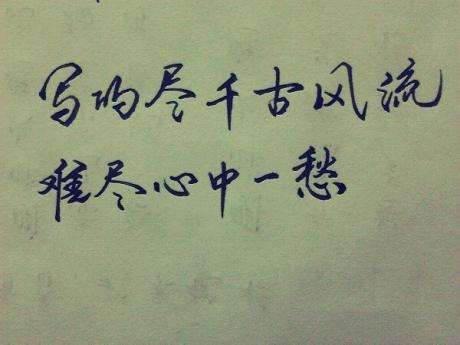 写的尽千古风流
难尽心中一愁